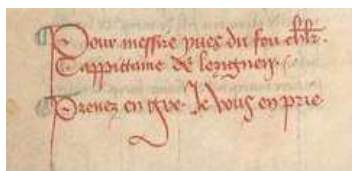 Pour messire yues du fou chlr.
Cappittaine de lezignen.
Prenez en gre. Je vous en prie